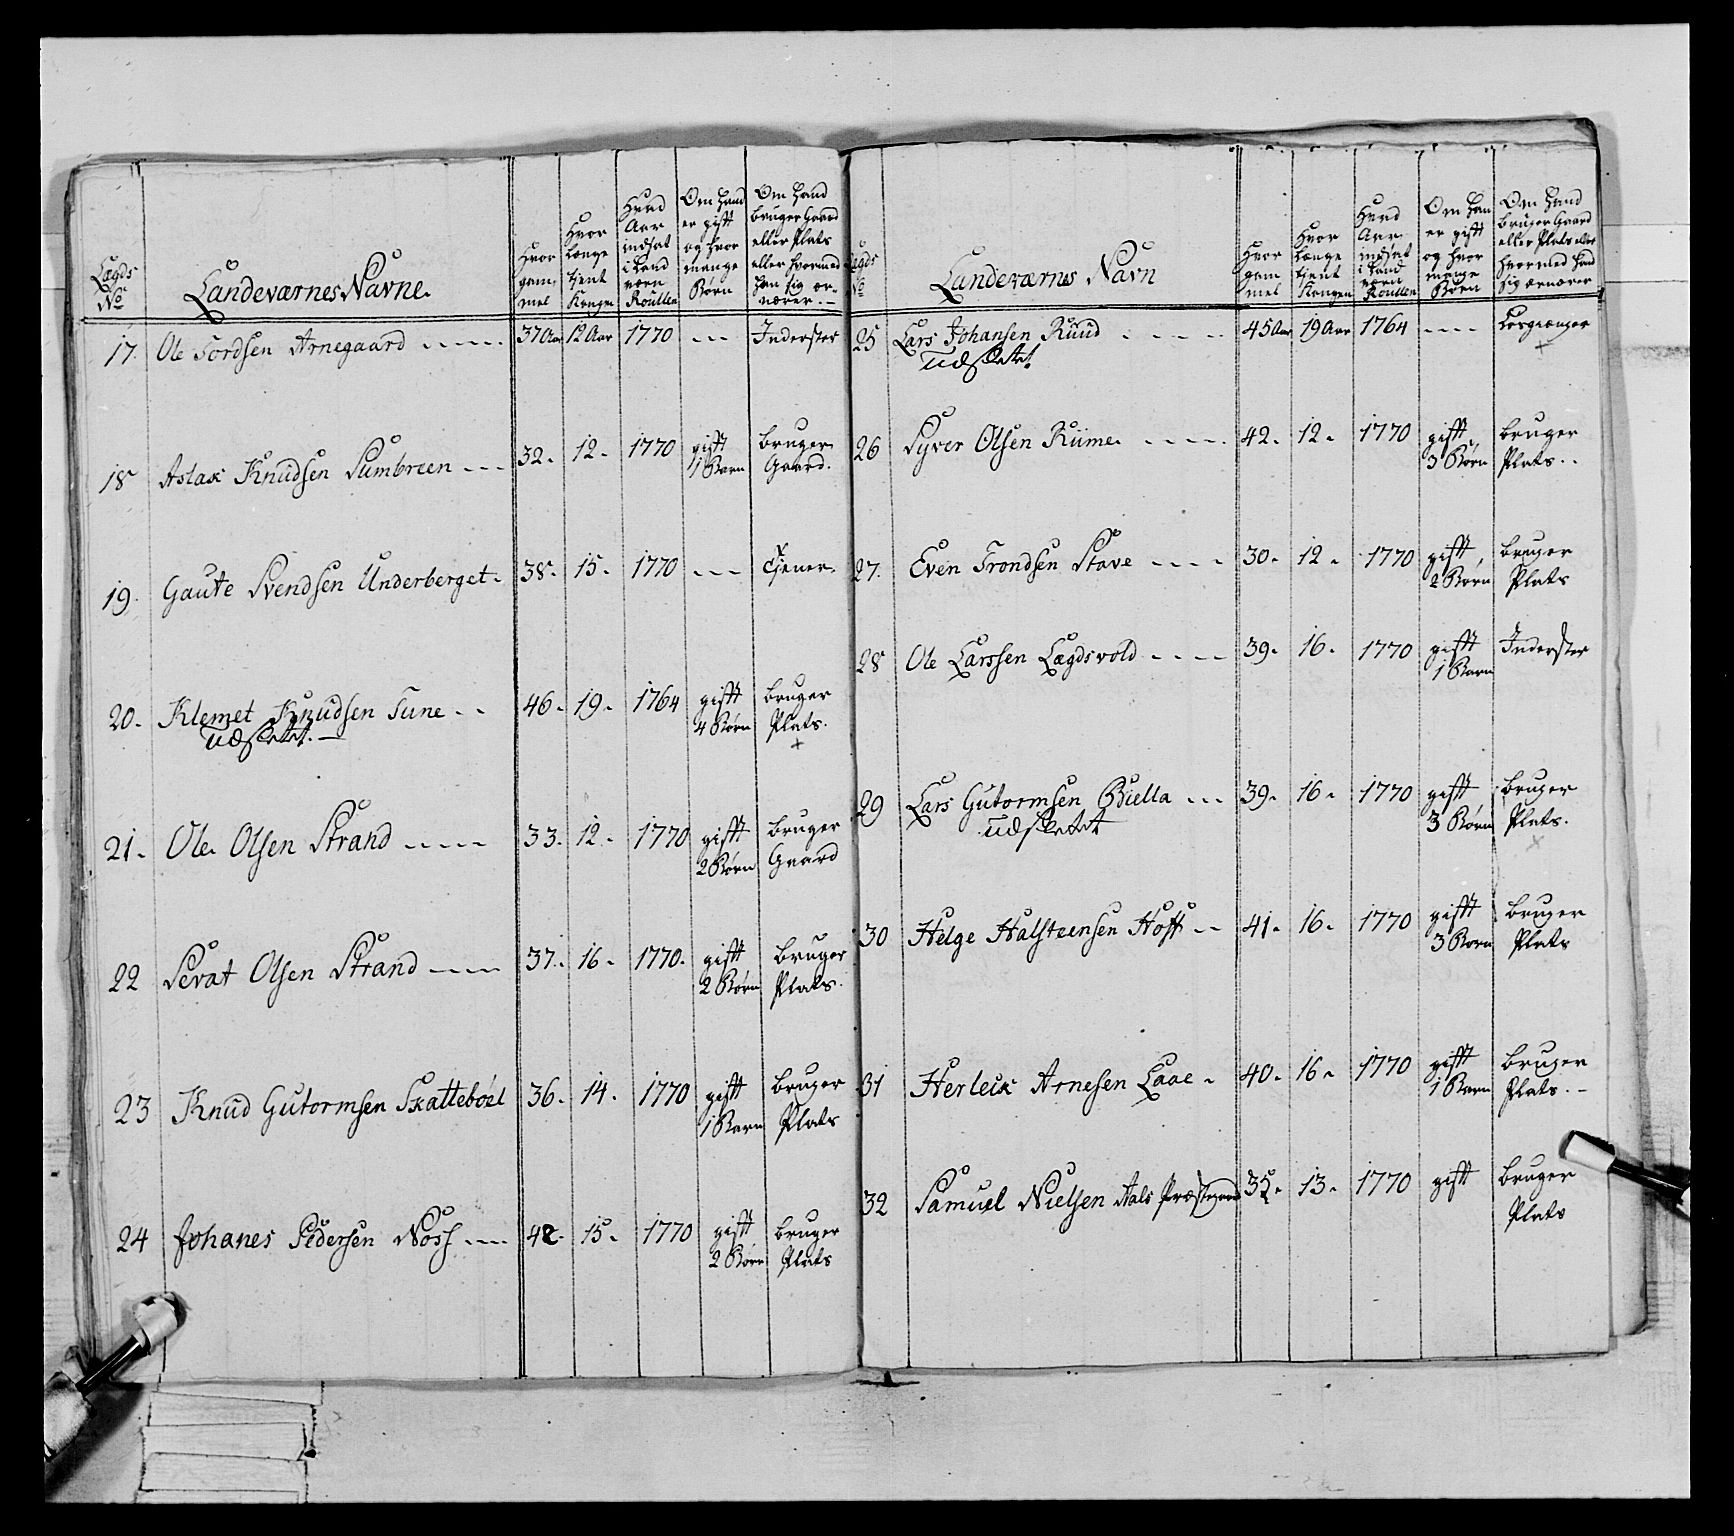 Lægds No
Landeværnes Navne.
Hvor gam- mel
Hvor længe tjent Kongen
Hvad Aar indsat i Land værn Roullen
Om hand er gift og hvor mange Børn
Om hand bruger Gaard eller Plats eller hvormed han sig er- nærer.
17. Ole Tordsen Arnegaard ----- 37 Aar 12 Aar 1770 --- Inderster
18 Aslak Knudsen Sumbreen --- 32. 12. 1770 gifft 1 Barn bruger Gaard.
19. Gaute Svendsen Underberget. 38. 15. 1770 --- Tjener.
20. Klemet Knudsen Tune -- 46. 19. 1764 gifft 4 Børn bruger Plats.
udslettet. +
21. Ole Olsen Strand ----- 33. 12. 1770 gifft 2 Børn bruger Gaard
22 Sevat Olsen Strand ---- 37. 16. 1770. gifft 2 Børn bruger Plats.
23 Knud Gutormsen Skattebøel 36. 14. 1770 gifft 1 Barn bruger Plats
24 Johanes Pedersen Noss ---- 42. 15. 1770 gifft 2 Børn bruger Plats
Lægds No
Landeværnes Navn
Hvor gam mel
Hvor længe tjent Kongen
Hvad Aar indsat i Land værn Roullen
Om han er gift og hvor mange Børn
Om hand bruger Gaard eller Plats eller hvormed hand sig ernærer
25 Lars Johansen Ruud ---- 45 Aar 19 Aar 1764 ---- Losgiænger
udslettet. +
26 Syver Olsen Riime. ----- 42. 12. 1770 gifft 3 Børn bruger Plats..
27. Even Trondsen Stave ---- 30. 12. 1770 gifft 2 Børn bruger Plats
28 Ole Larssen Lægdsvold ---- 39. 16. 1770 gifft 1 Barn Inderster
29 Lars Gutormsen Biella --- 39. 16. 1770 gifft 3 Børn bruger Plats.
udslettet +
30 Helge Halsteensen Hoff -- 41. 16. 1770 gifft 3 Børn bruger Plats
31 Herleik Arnesen Laae. 40. 16. 1770 gifft 1 Barn bruger Plats.-
32 Samuel Nielsen Aals Præstegaard 35. 13. 1770 gifft bruger Plats